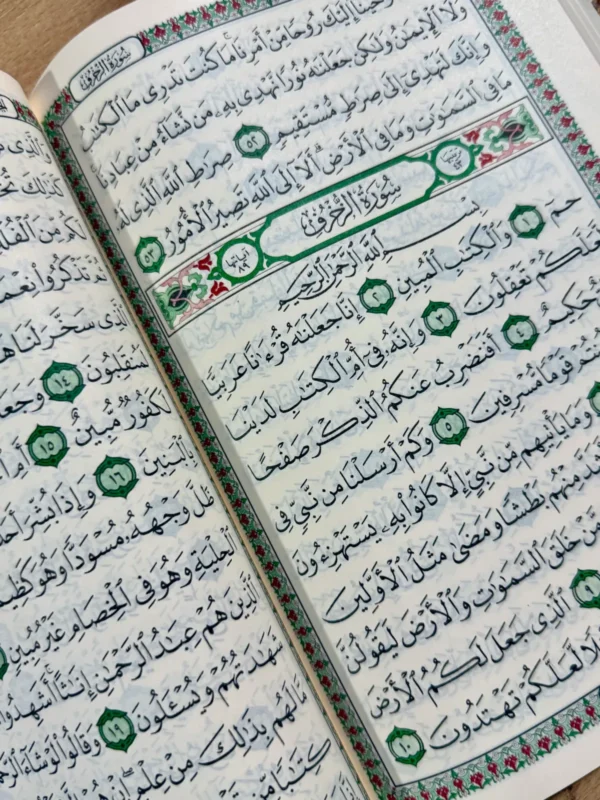 سُورَةُ الزُّخْرُفِ
أَوْحَيْنَا إِلَيْكَ رُوحًا مِّنْ أَمْرِنَا مَا كُنتَ تَدْرِى مَا ٱلْكِتَٰبُ
وَلَا ٱلْإِيمَٰنُ وَلَٰكِن جَعَلْنَٰهُ نُورًا نَّهْدِى بِهِۦ مَن نَّشَآءُ مِنْ عِبَادِنَا
وَإِنَّكَ لَتَهْدِىٓ إِلَىٰ صِرَٰطٍ مُّسْتَقِيمٍ ٥٢ صِرَٰطِ ٱللَّهِ ٱلَّذِى لَهُۥ
مَا فِى ٱلسَّمَٰوَٰتِ وَمَا فِى ٱلْأَرْضِ أَلَآ إِلَى ٱللَّهِ تَصِيرُ ٱلْأُمُورُ ٥٣
سُورَةُ الزُّخْرُفِ آيَاتُهَا ٨٩
بِسْمِ ٱللَّهِ ٱلرَّحْمَٰنِ ٱلرَّحِيمِ
حمٓ ١ وَٱلْكِتَٰبِ ٱلْمُبِينِ ٢ إِنَّا جَعَلْنَٰهُ قُرْءَٰنًا عَرَبِيًّا
لَّعَلَّكُمْ تَعْقِلُونَ ٣ وَإِنَّهُۥ فِىٓ أُمِّ ٱلْكِتَٰبِ لَدَيْنَا
حَكِيمٌ ٤ أَفَنَضْرِبُ عَنكُمُ ٱلذِّكْرَ صَفْحًا
قَوْمًا مُّسْرِفِينَ ٥ وَكَمْ أَرْسَلْنَا مِن نَّبِىٍّ فِى
وَمَا يَأْتِيهِم مِّن نَّبِىٍّ إِلَّا كَانُوا۟ بِهِۦ يَسْتَهْزِءُونَ
أَشَدَّ مِنْهُم بَطْشًا وَمَضَىٰ مَثَلُ ٱلْأَوَّلِينَ
مَّنْ خَلَقَ ٱلسَّمَٰوَٰتِ وَٱلْأَرْضَ لَيَقُولُنَّ
٩ ٱلَّذِى جَعَلَ لَكُمُ ٱلْأَرْضَ
لَّعَلَّكُمْ تَهْتَدُونَ ١٠
وَٱلَّذِى
كَذَٰلِكَ
لَكُم مِّنَ ٱلْفُلْكِ
ثُمَّ تَذْكُرُوا۟ نِعْمَةَ
ٱلَّذِى سَخَّرَ لَنَا هَٰذَا
لَمُنقَلِبُونَ ١٤ وَجَعَلُوا۟
لَكَفُورٌ مُّبِينٌ ١٥ أَمِ
بِٱلْبَنِينَ ١٦ وَإِذَا بُشِّرَ أَحَدُهُم
ظَلَّ وَجْهُهُۥ مُسْوَدًّا وَهُوَ كَظِيمٌ
ٱلْحِلْيَةِ وَهُوَ فِى ٱلْخِصَامِ غَيْرُ مُبِينٍ
ٱلَّذِينَ هُمْ عِبَٰدُ ٱلرَّحْمَٰنِ إِنَٰثًا أَشَهِدُوا۟
شَهَٰدَتُهُمْ وَيُسْـَٔلُونَ ١٩ وَقَالُوا۟ لَوْ شَآءَ ٱلرَّحْمَٰنُ
مَا لَهُم بِذَٰلِكَ مِنْ عِلْمٍ إِنْ هُمْ
كِتَٰبًا مِّن